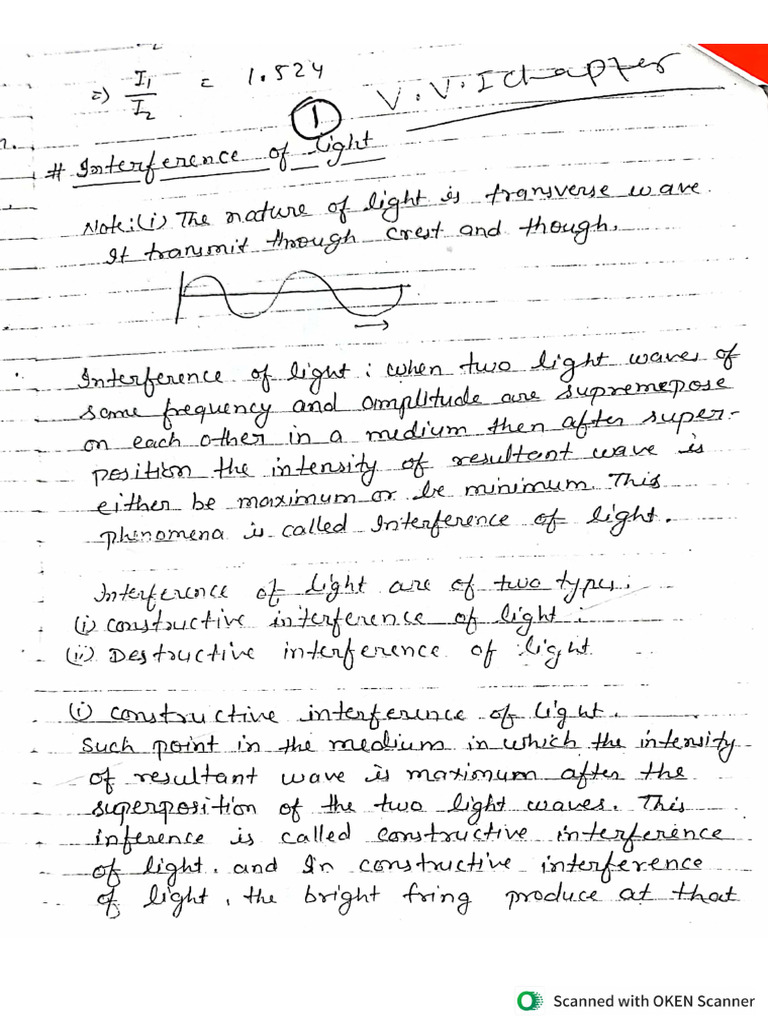 => I1/I2 = 1.524
V.V.I Chapter
1
# Interference of light
Note:(i) The nature of light is transverse wave.
It transmit through crest and though.
Interference of light : when two light waves of
same frequency and amplitude are supremepose
on each other in a medium then after super-
position the intensity of resultant wave is
either be maximum or be minimum. This
phinomena is called Interference of light.
Interference of light are of two types:
(i) constructive interference of light :
(ii) Destructive interference of light
(i) constructive interference of light.
Such point in the medium in which the intensity
of resultant wave is maximum after the
superposition of the two light waves. This
inference is called constructive interference
of light. and In constructive interference
of light, the bright fring produce at that
Scanned with OKEN Scanner